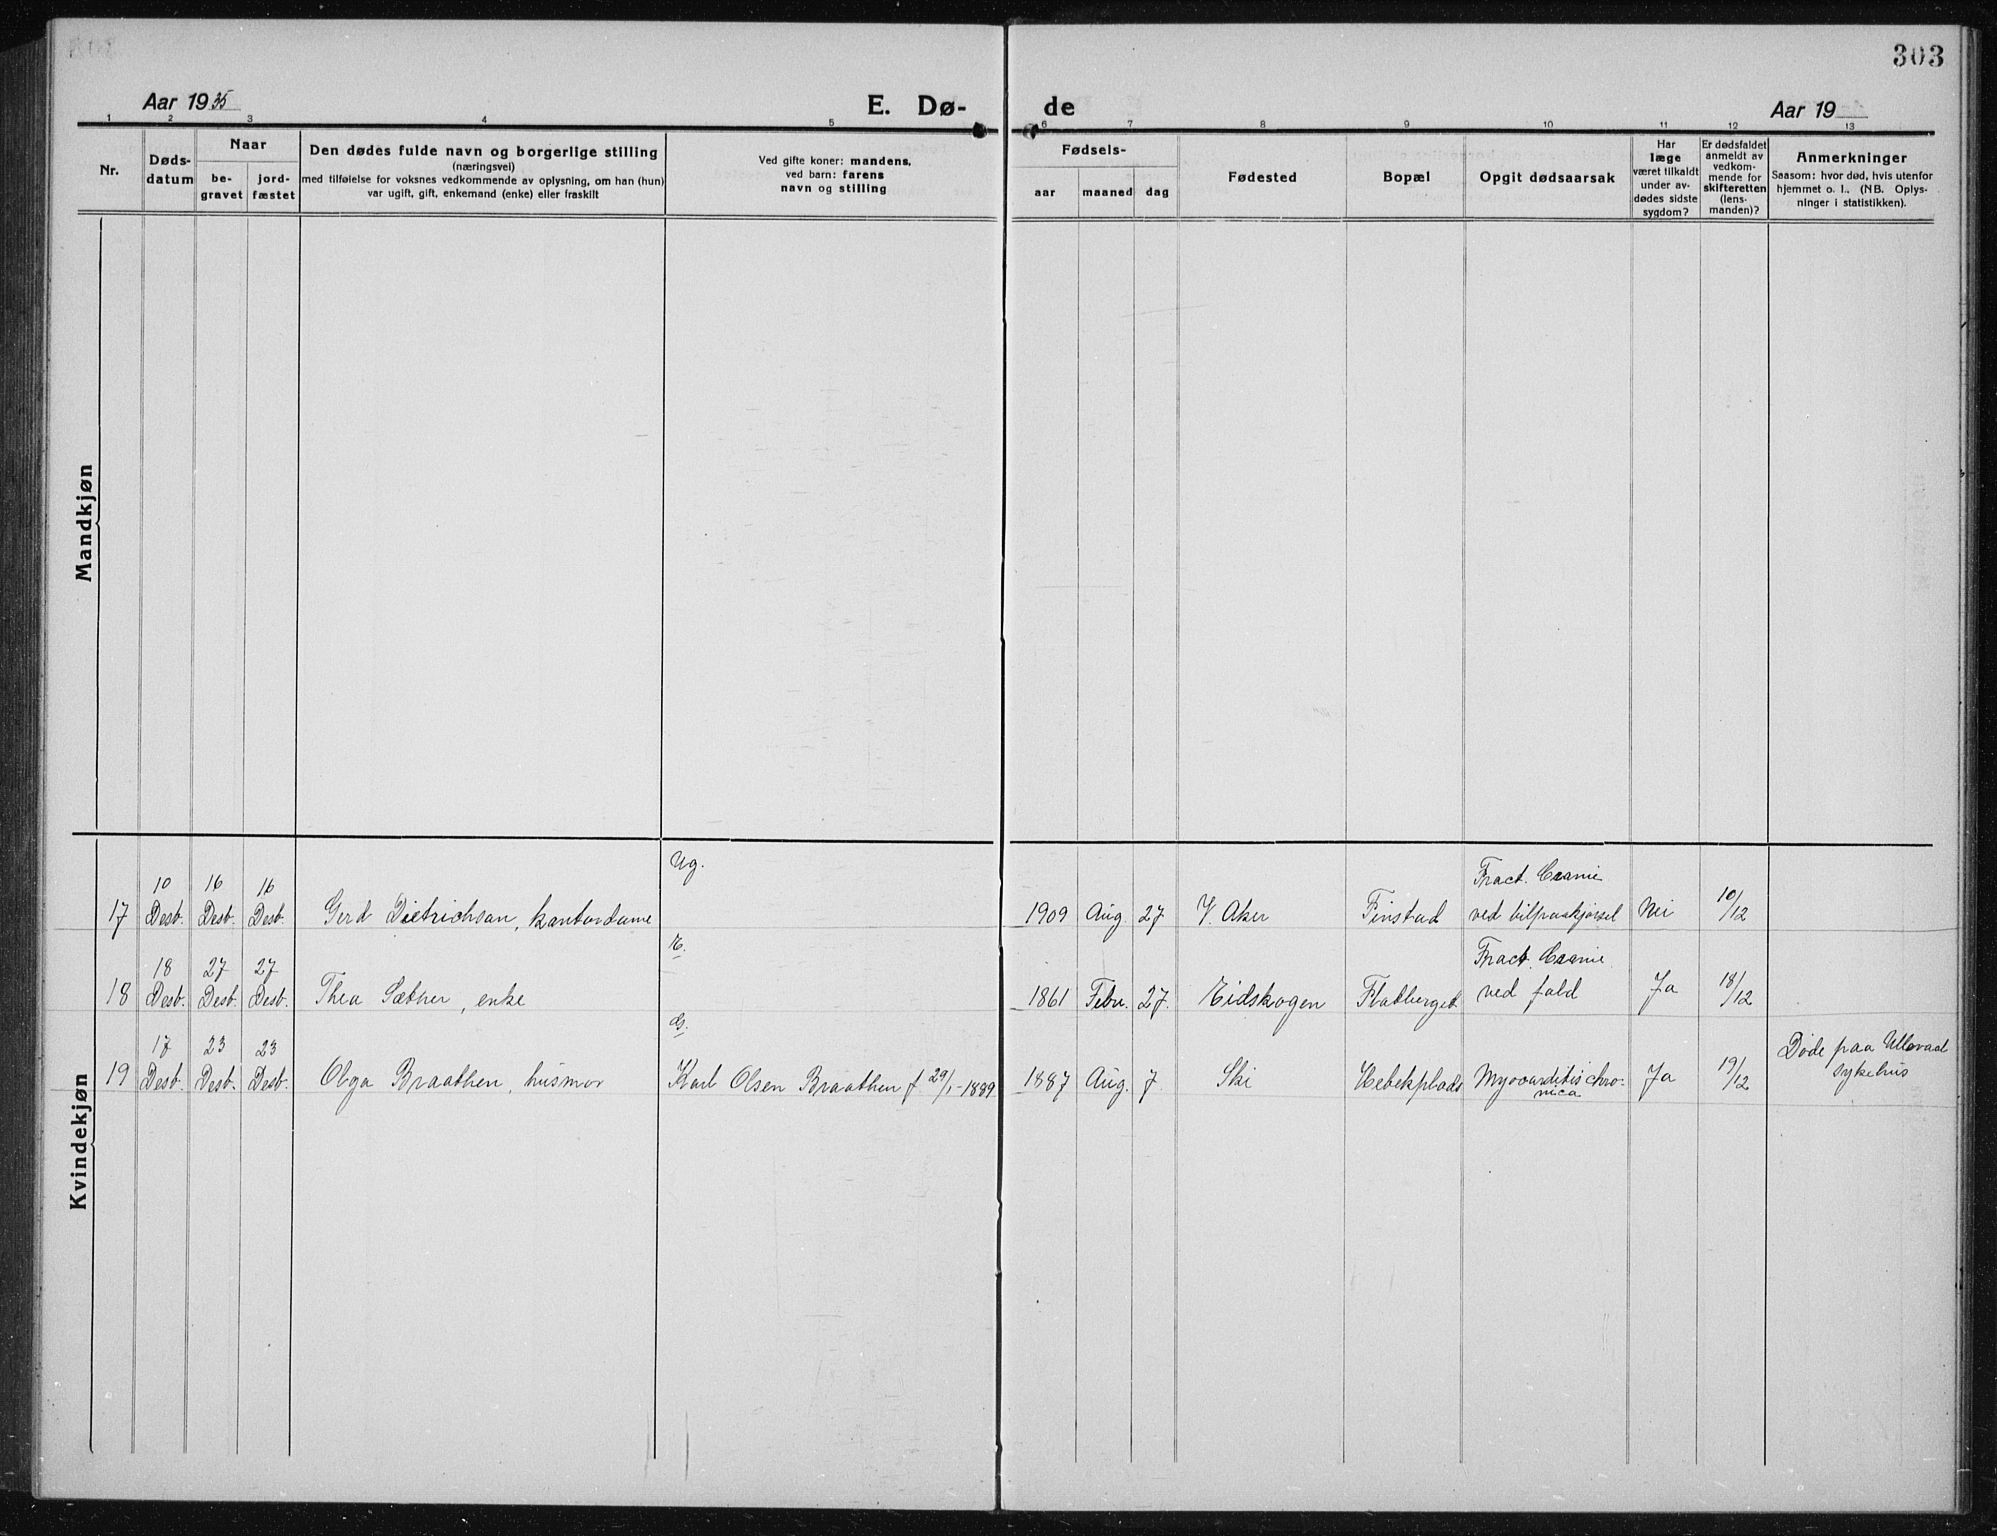 303
Aar 1935
E. Dø-
de
Aar 19
1 2 3 4 5 6 7 8 9 10 11 12 13
Nr.
Døds-
datum
Naar
be-
gravet
jord-
fæstet
Den dødes fulde navn og borgerlige stilling
(næringsvei)
med tilføielse for voksnes vedkommende av oplysning, om han (hun)
var ugift, gift, enkemand (enke) eller fraskilt
Ved gifte koner: mandens,
ved barn: farens
navn og stilling
Fødsels-
aar
maaned
dag
Fødested
Bopæl
Opgit dødsaarsak
Har
læge
været tilkaldt
under av-
dødes sidste
sygdom?
Er dødsfaldet
anmeldt av
vedkom-
mende for
skifteretten
(lens-
manden)?
Anmerkninger
Saasom: hvor død, hvis utenfor
hjemmet o. l. (NB. Oplys-
ninger i statistikken).
Mandkjøn
Kvindekjøn
Ug.
10 16 16 Fract. Cranie
17 Desb. Desb. Desb. Gerd Dietrichson, kontordame 1909 Aug. 27 V. Aker Finstad ved bilpaakjørsel Nei 10/12
E.
18 27 27 Fract. Cranie
18 Desb. Desb. Desb. Thea Sæther, enke 1861 Febr. 27. Eidskogen Flatberget ved fald Ja 18/12
G.
17 23 23 Døde paa Ullevaal
19 Desb. Desb. Desb. Olga Braathen, husmor Karl Olsen Braathen f. 29/1-1889 1887 Aug. 7. Ski Hebekplads Myocarditis chro- Ja 19/12 sykehus
nica